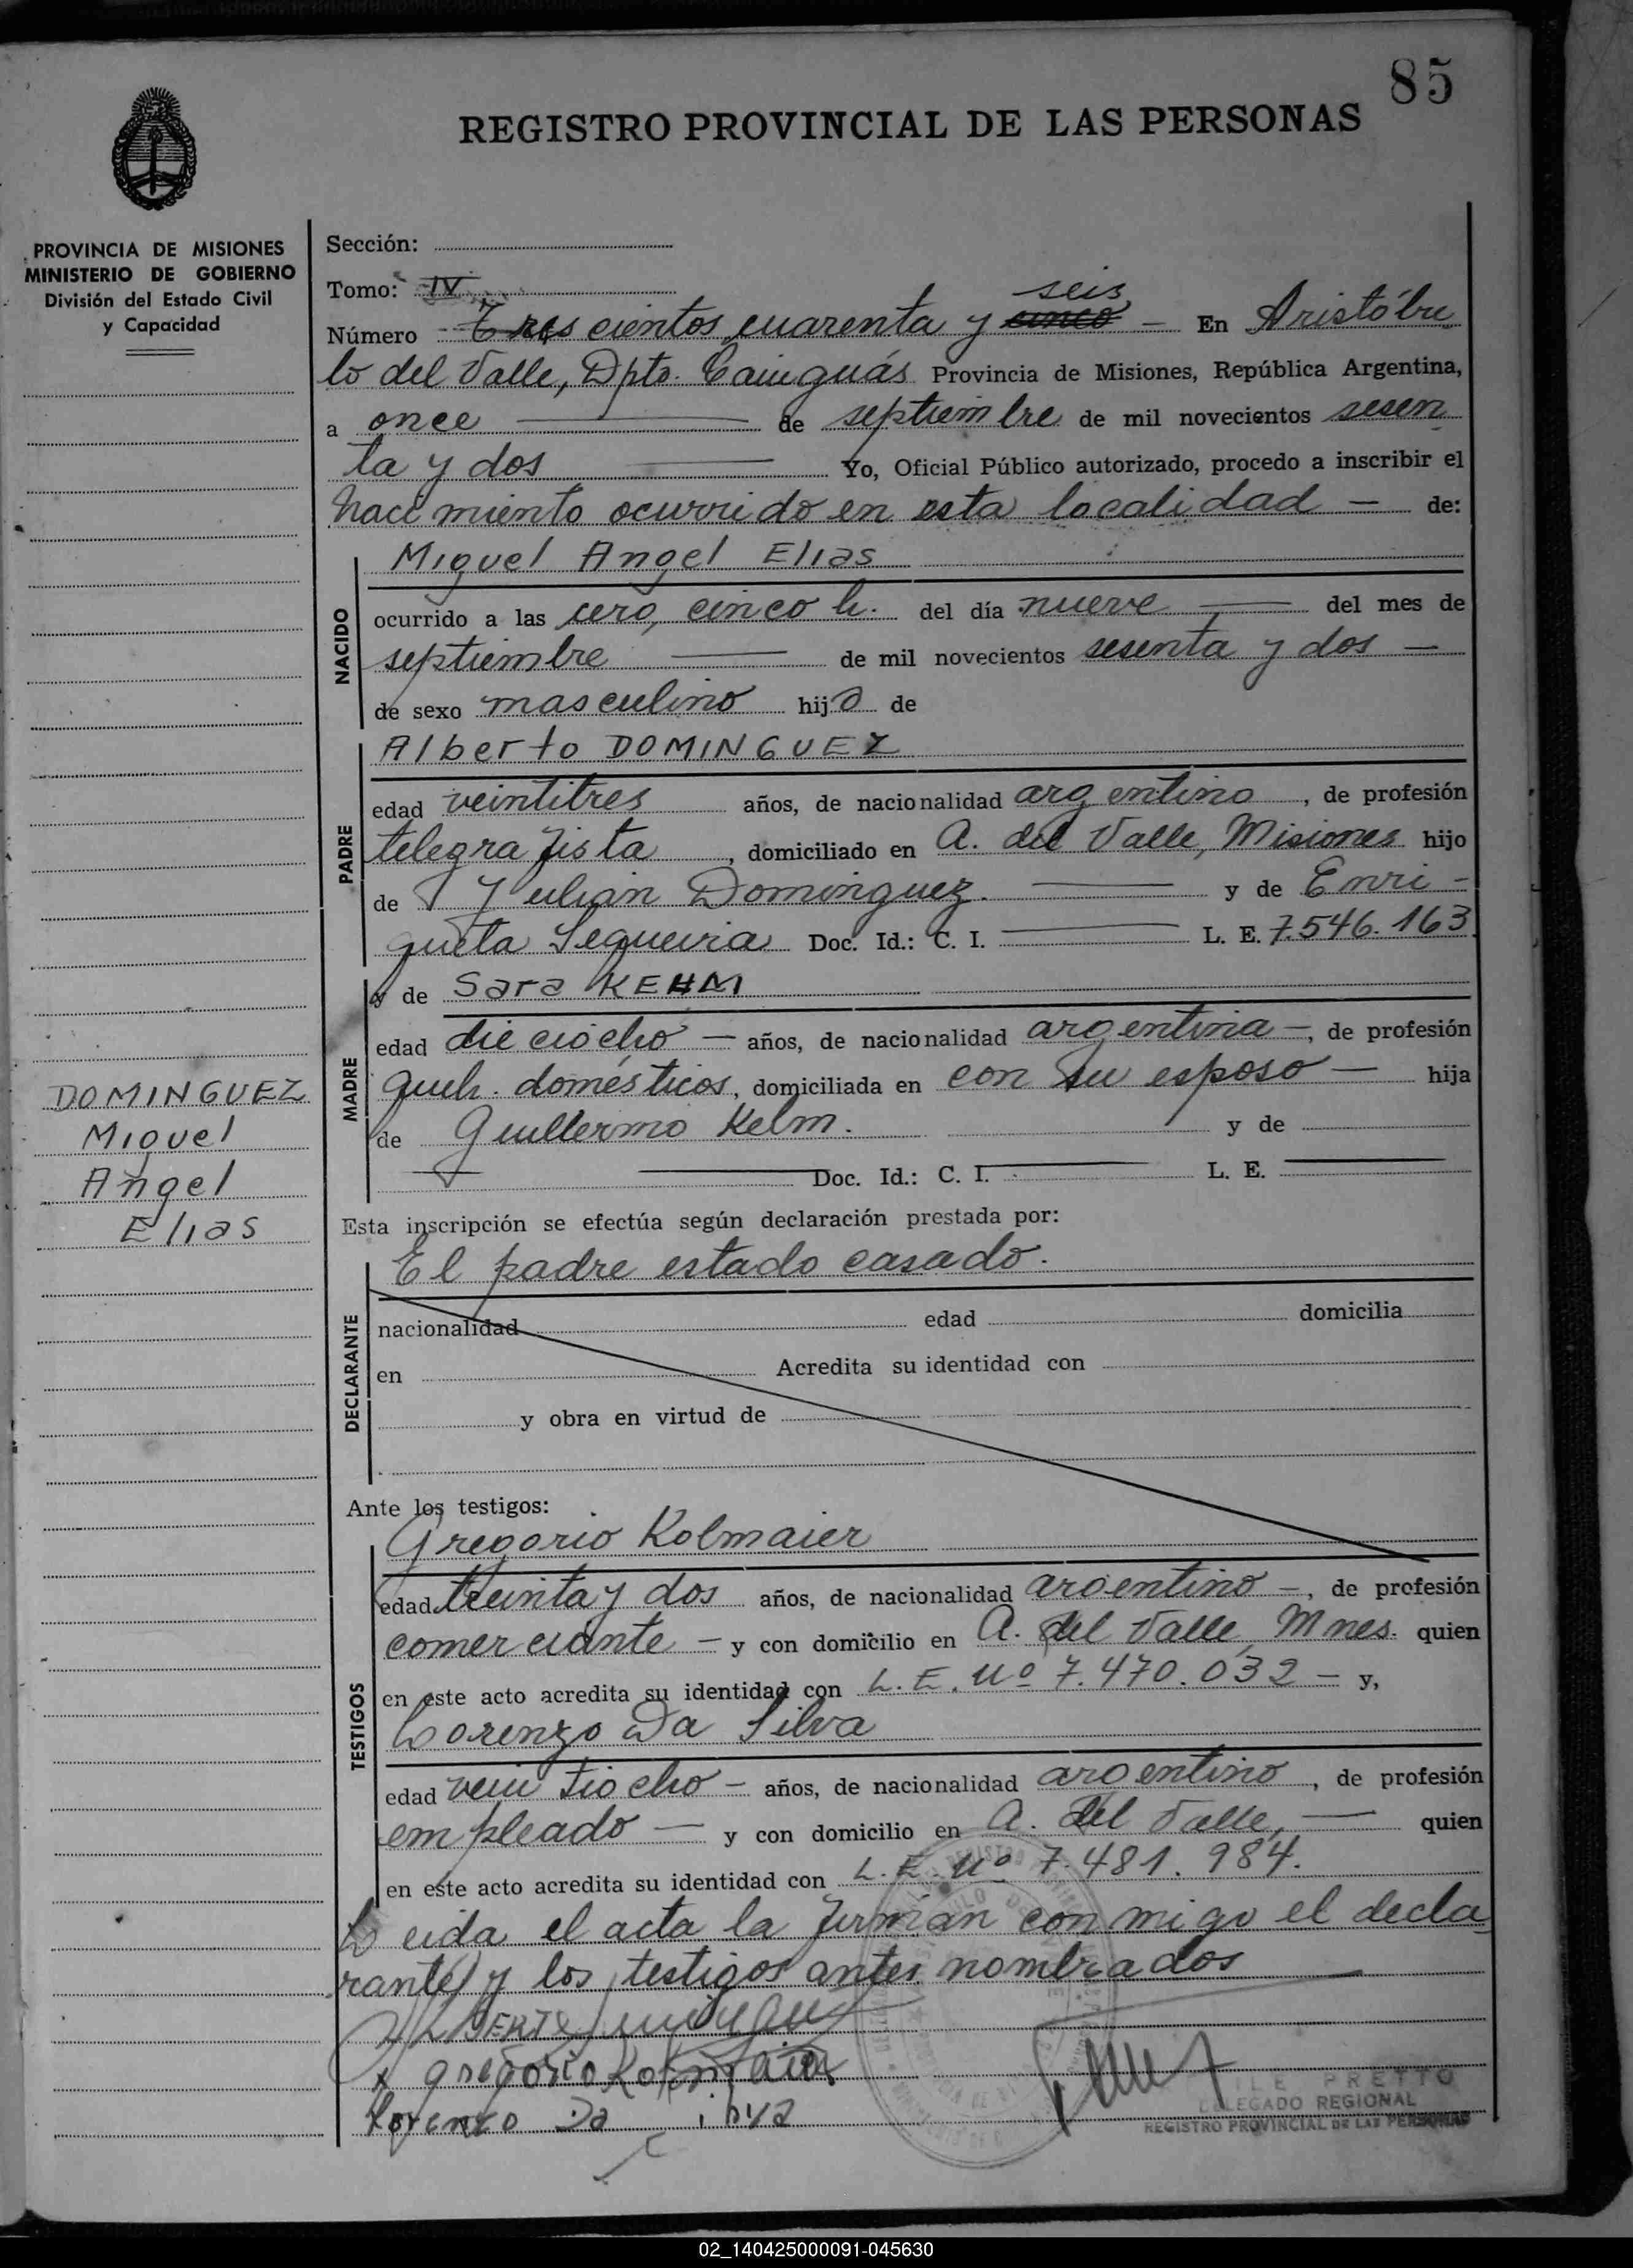 85
REGISTRO PROVINCIAL DE LAS PERSONAS
PROVINCIA DE MISIONES
MINISTERIO DE GOBIERNO
División del Estado Civil
y Capacidad
DOMINGUEZ
Miguel
Angel
Elias
Sección:
Tomo: IV
seis
Número Trescientos cuarenta y cinco — En Aristóbu
lo del Valle, Dpto. Cainguás Provincia de Misiones, República Argentina,
a once de septiembre de mil novecientos sesen
ta y dos Yo, Oficial Público autorizado, procedo a inscribir el
nacimiento ocurrido en esta localidad — de:
NACIDO
Miguel Angel Elias
ocurrido a las cero, cinco h. del día nueve — del mes de
septiembre — de mil novecientos sesenta y dos —
de sexo masculino hijo de
PADRE
Alberto DOMINGUEZ
edad veintitres años, de nacionalidad argentino, de profesión
telegrafista, domiciliado en A. del Valle, Misiones hijo
de Julian Dominguez. — y de Enri-
queta Sequeira Doc. Id.: C. I. — L. E. 7.546.163
MADRE
y de Sara KEHM
edad dieciocho — años, de nacionalidad argentina —, de profesión
queh. domésticos, domiciliada en con su esposo — hija
de Guillermo Kelm. y de
Doc. Id.: C. I. — L. E. —
Esta inscripción se efectúa según declaración prestada por:
DECLARANTE
El padre estado casado.
nacionalidad edad domicilia
en Acredita su identidad con
y obra en virtud de
Ante los testigos:
TESTIGOS
Gregorio Kolmaier
edad treinta y dos años, de nacionalidad argentino —, de profesión
comerciante — y con domicilio en A. del Valle, Mnes. quien
en este acto acredita su identidad con L. E. Nº 7.470.032 — y,
Lorenzo Da Silva
edad veintiocho — años, de nacionalidad argentino, de profesión
empleado — y con domicilio en A. del Valle, — quien
en este acto acredita su identidad con L. E. Nº 7.481.984.
Leida el acta la firman conmigo el decla
rante y los testigos antes nombrados
Gregorio Kolmaier
Lorenzo Da
PRETTO
DELEGADO REGIONAL
REGISTRO PROVINCIAL DE LAS PERSONAS
02_140425000091-045630